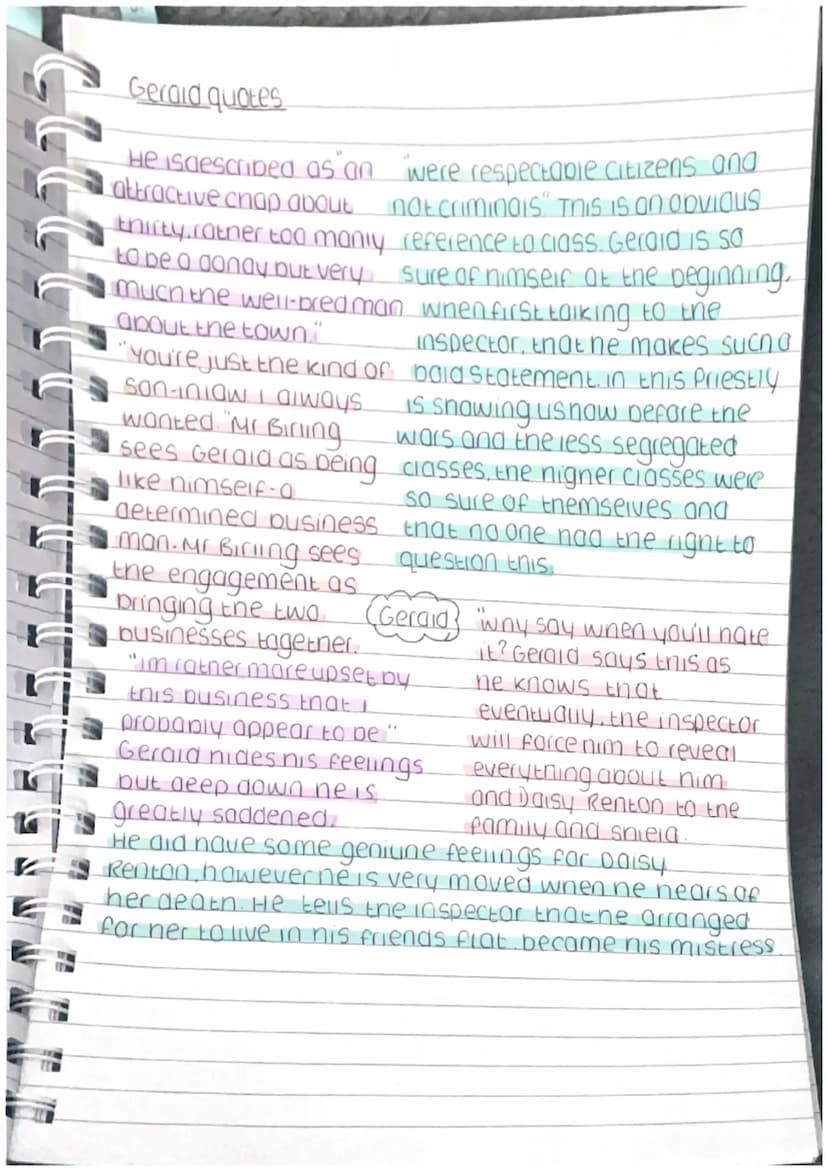 Gerald quotes
He is described as "an
attractive chap about
thirty, rather too manly
to be a dandy but very
much the well-bred man
about the town."
"You're just the kind of
son-in law I always
wanted." Mr Birling
sees Gerald as being
like himself - a
determined business
man. Mr Birling sees
the engagement as
bringing the two
businesses together.
"im rather more upset by
this business that I
probably appear to be"
Gerald hides his feelings
but deep down he is
greatly saddened.
"we're respectable citizens and
not criminals" This is an obvious
reference to class. Gerald is so
sure of himself at the beginning,
when first talking to the
inspector, that he makes such a
bald statement. in this Priestly
is showing us how before the
wars and the less segregated
classes, the higher classes were
so sure of themselves and
that no one had the right to
question this.
Gerald
"why say when you'll hate
it? Gerald says this as
he knows that
eventually, the inspector
will force him to reveal
everything about him
and Daisy Renton to the
family and shiela.
He did have some geniune feelings for Daisy
Renton, however he is very moved when he hears of
her death. He tells the inspector that he arranged
for her to live in his friends flat. became his mistress.